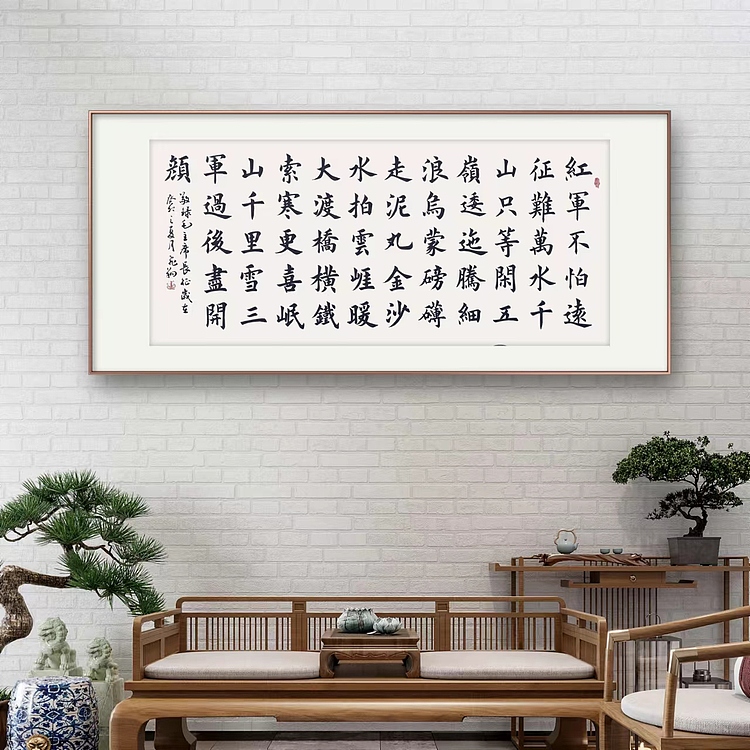 紅軍不怕遠
征難萬水千
山只等閑五
嶺逶迤騰細
浪烏蒙磅礴
走泥丸金沙
水拍雲崕暖
大渡橋橫鐵
索寒更喜岷
山千里雪三
軍過後盡開
顏
敬錄毛主席長征歲在
之夏月